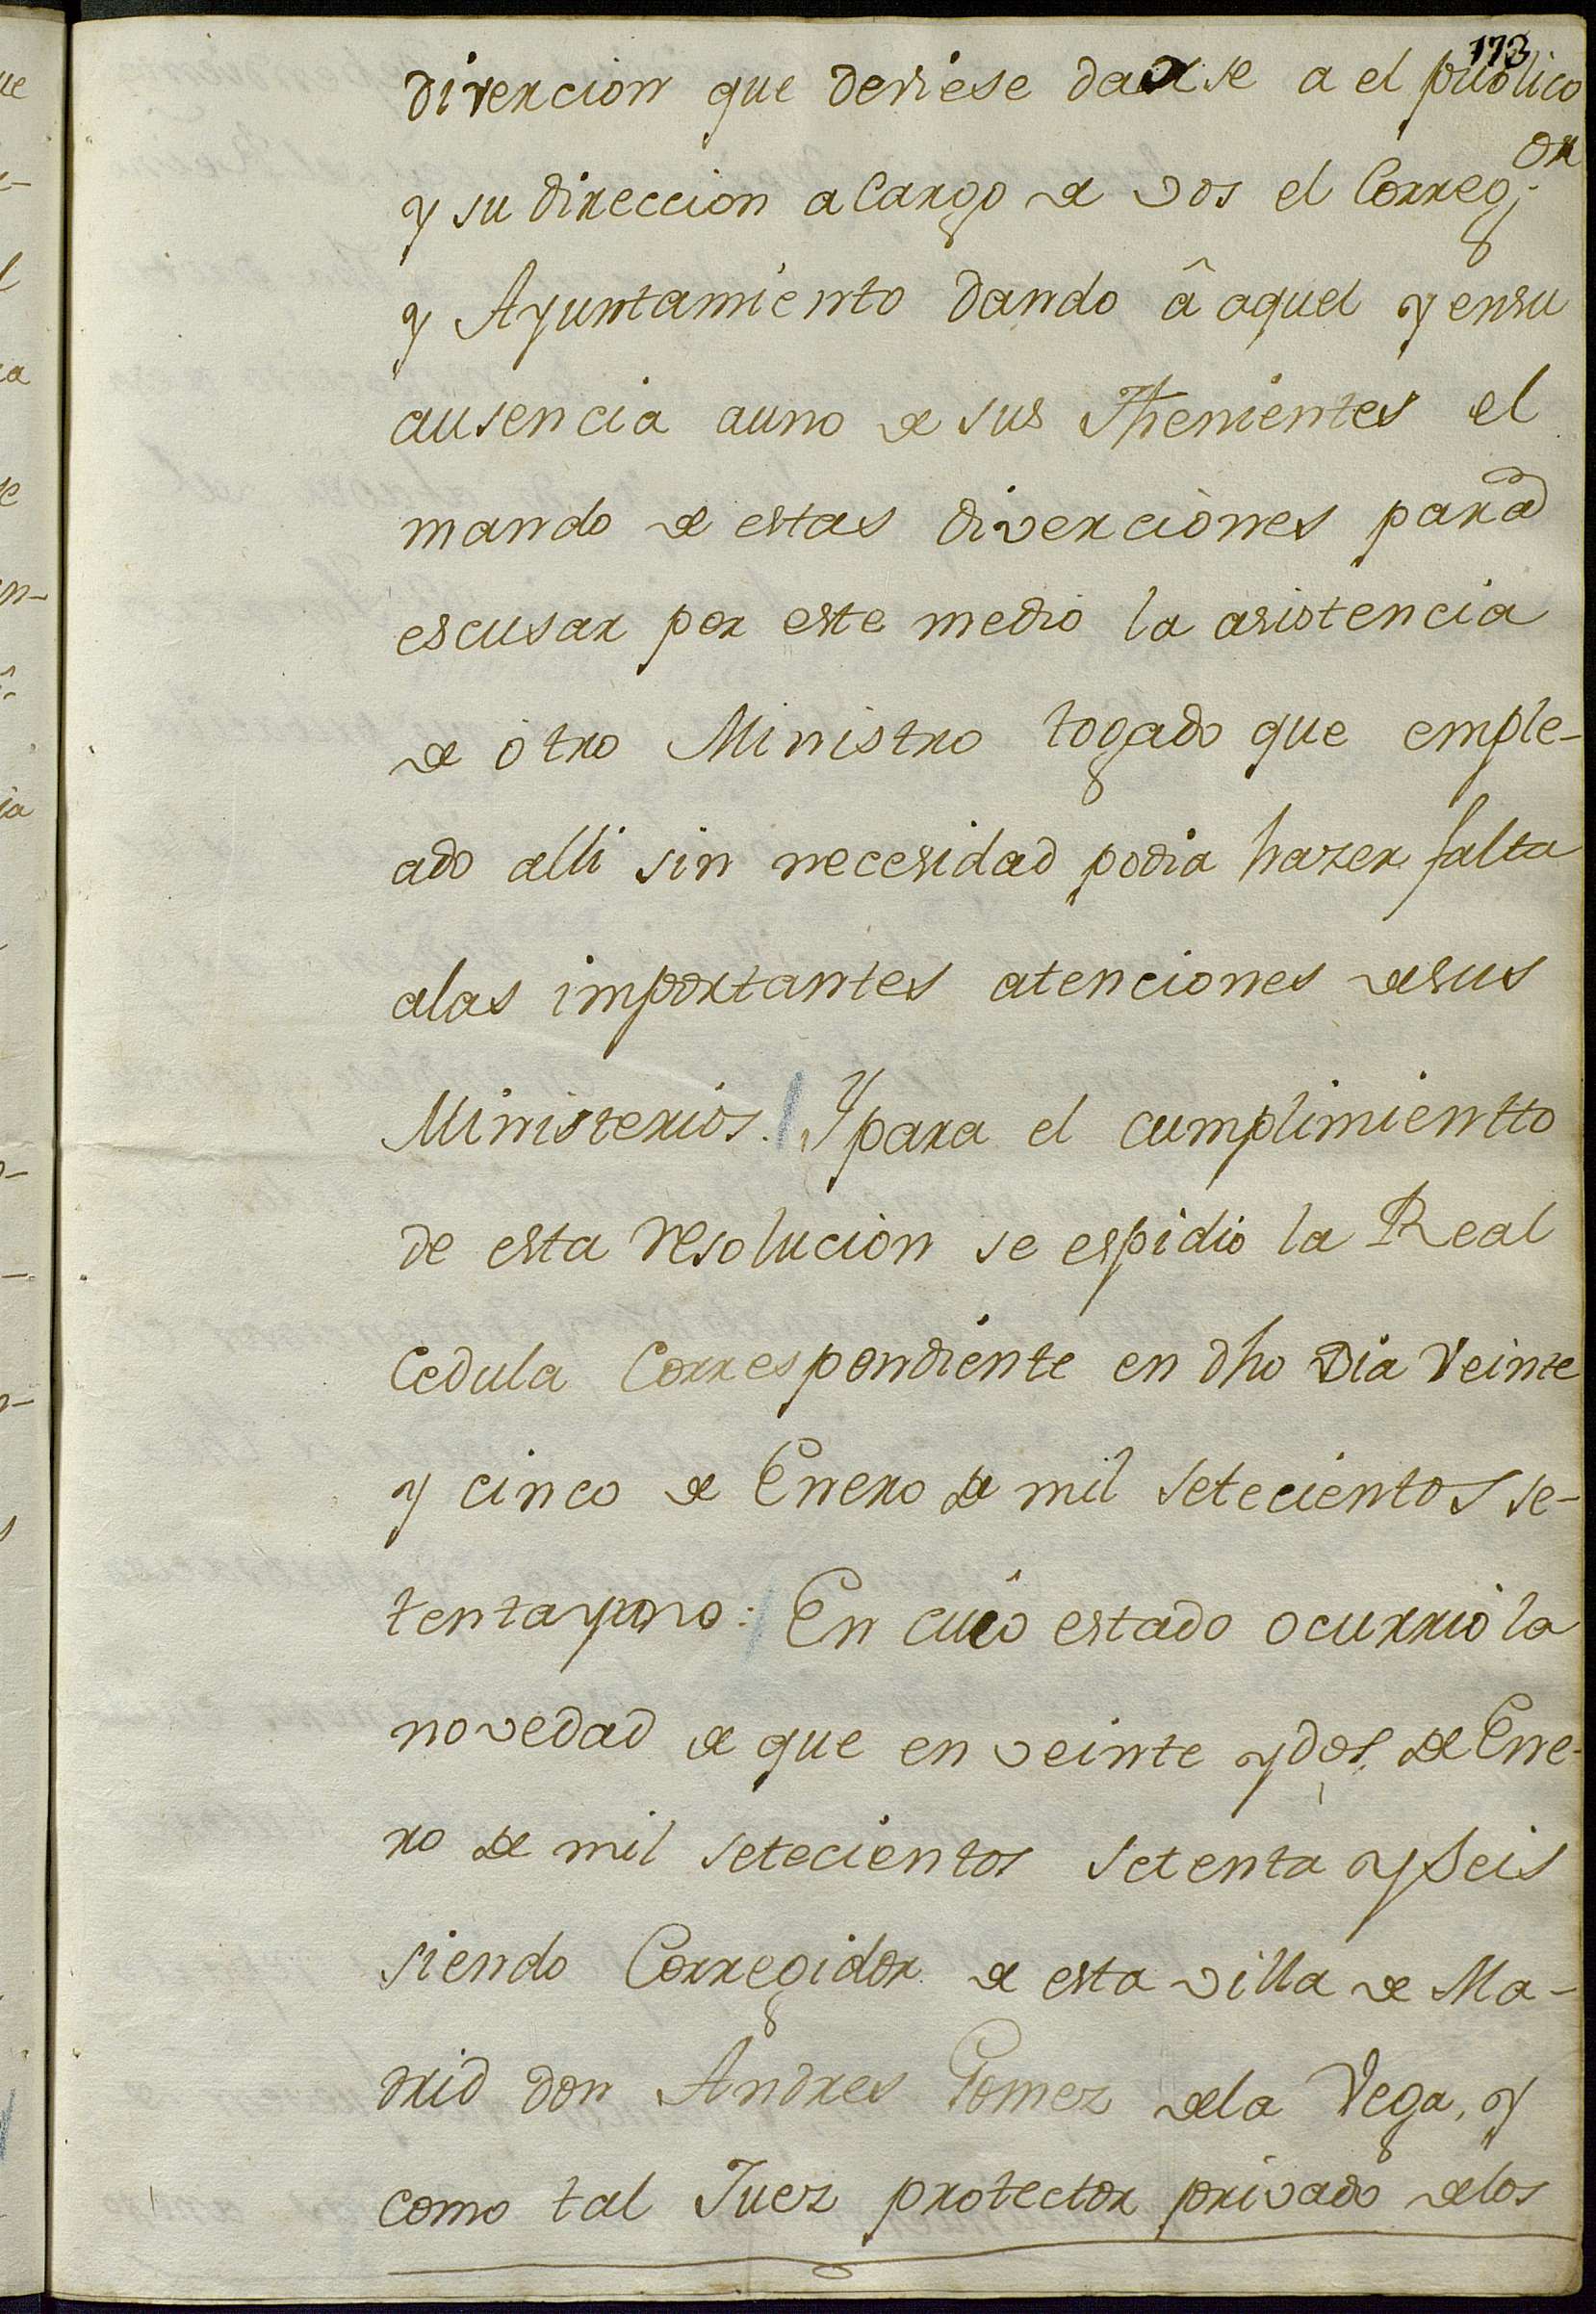 173
divercion que deviese darse a el publico
y su direccion a Cargo de vos el Correg.or
y Ayuntamiento dando â aquel y ensu
ausencia auno de sus Thenientes el
mando de estas diverciones para
escusar por este medio la asistencia
de otro Ministro togado que emple-
ado alli sin necesidad podia hazer falta
alas importantes atenciones desus
Ministerios. Y para el cumplimientto
de esta resolucion se espidio la Real
Cedula Correspondiente en dho Dia Veinte
y cinco de Enero de mil setecientos se-
tentayuno: En cuio estado ocurrio la
novedad de que en veinte ydos de Ene-
ro de mil setecientos setenta y seis
siendo Corregidor de esta villa de Ma-
drid don Andres Gomez dela Vega, y
como tal Juez protector privado delos